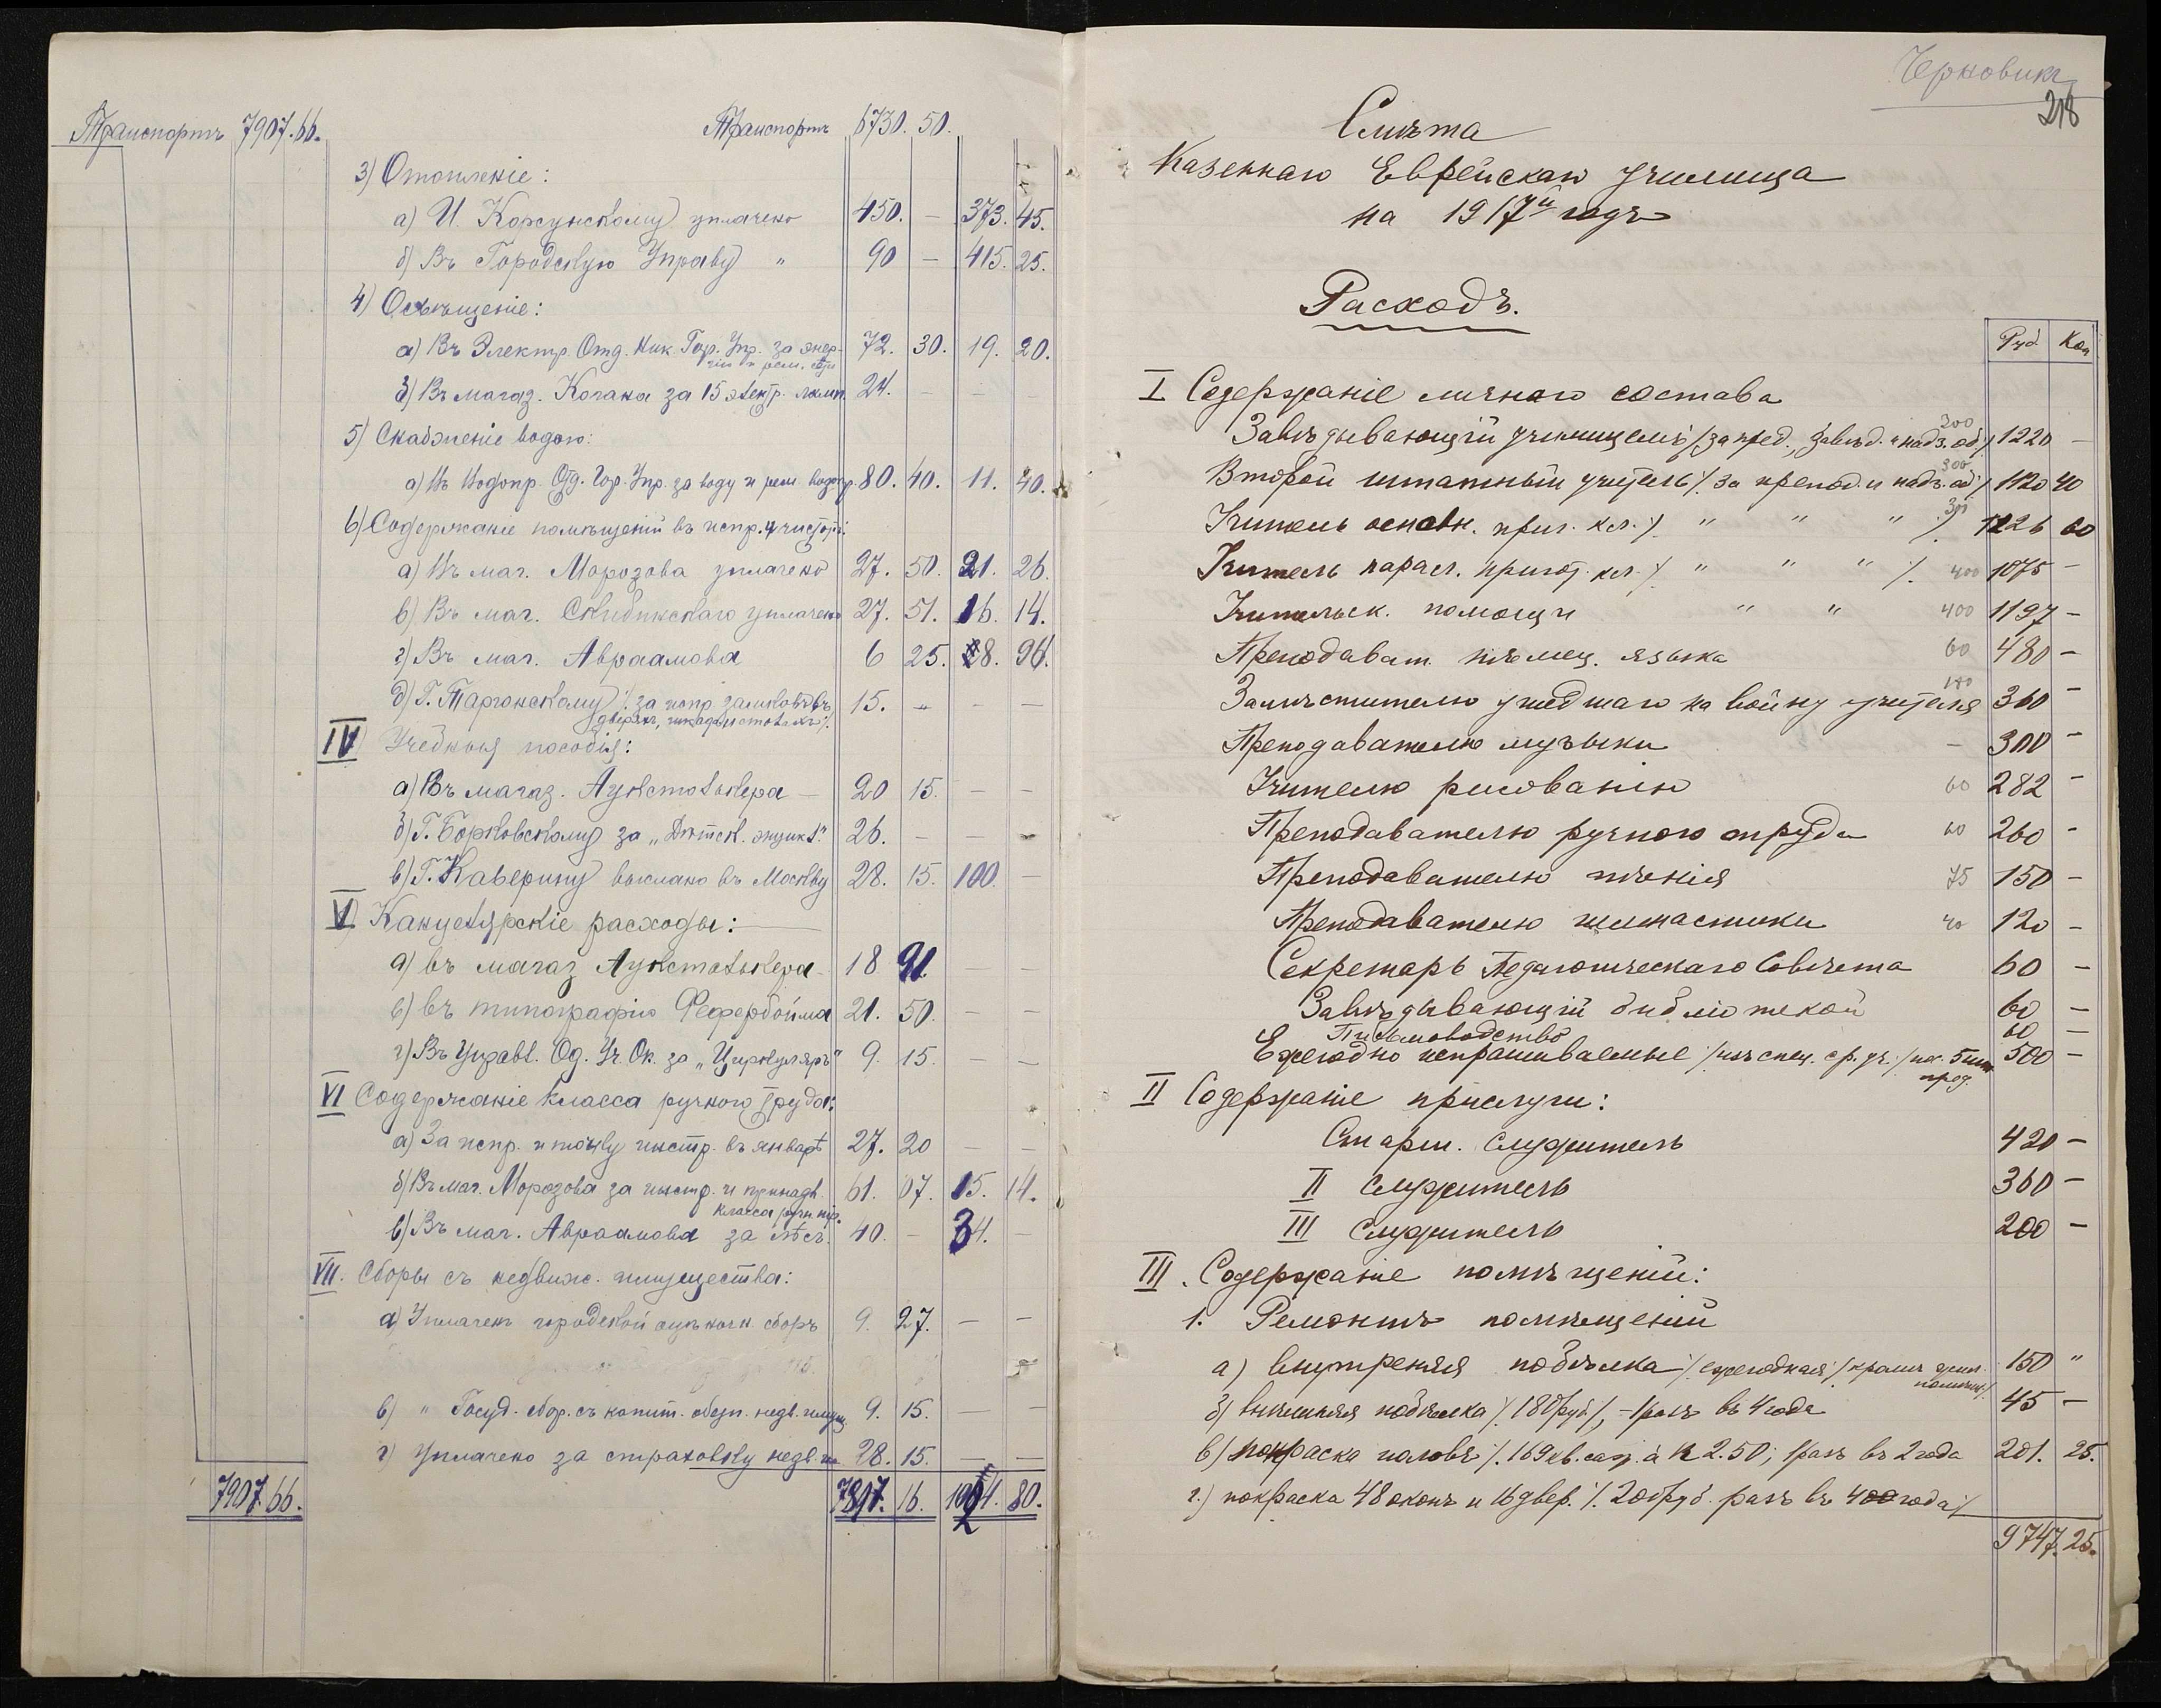 Транспортъ 7907.66.
Транспортъ 6730. 50.
3) Отопленіе:
а) И. Корсунскому уплачено 450. — 373. 45.
б) Въ Городскую Управу " 90 — 415. 25.
4) Освѣщеніе:
а) Въ Электр. Отд. Ник. Гор. Упр. за энер- 72. 30. 19. 20.
гію и рем. сѣти
б) Въ магаз. Когана за 15 электр. ламп. 24. — — —
5) Снабженіе водою:
а) Въ Водопр. Отд. Гор. Упр. за воду и рем. водопр. 80. 40. 11. 40.
6) Содержаніе помѣщеній въ испр. и чистотѣ:
а) Въ маг. Морозова уплачено 27. 50. 21. 26.
в) Въ маг. Скибинскаго уплачено 27. 51. 16. 14.
г) Въ маг. Авраамова 6 25. 28. 94.
д) Г. Таргонскому /за испр. замковъ въ 15. — — —
дверяхъ, шкафах и столахъ/.
IV Учебныя пособія:
а) Въ магаз. Лукстатькера — 20 15. — —
б) Г. Борковскому за „Дѣтск. энцикл." 26. — — —
в) Г. Каверину выслано въ Москву 28. 15. 100. —
V Канцелярскіе расходы:
а) въ магаз 18 91. — —
в) въ типографію Фефербойма 21. 50. — —
г) Въ Управл. Од. Уч. Ок. за „Циркуляръ" 9. 15. — —
VI Содержаніе класса ручного труда:
а) За испр. и точку инстр. въ январѣ 27. 20 — —
б) Въ маг. Морозова за инстр. и принадл. 61. 07. 15. 14.
класса ручн. тр.
в) Въ маг. Авраамова за лѣсъ. 40. — 34. —
VII. Сборы съ недвиж. имущества:
а) Уплаченъ городской оцѣночн. сборъ 9. 27. — —
в) " Госуд. сбор. съ недв. имущ. 9. 15. — —
г) Уплачено за страховку недв. им 28. 15. — —
7907.66. 7817. 16. 80.
Черновикъ
218
Смѣта
Казеннаго Еврейскаго училища
на 1917й годъ
Расходъ.
Руб. Коп
I Содержаніе личнаго состава
Завѣдывающій училищемъ /за препод., завѣд. и надз. об./ 300 1220 —
Второй штатный учитель /за препод. и надз. об./ 300 1120 40
Учитель основн. приг. кл. /. " " " /. 1226 60
Учитель парал. пригот. кл. /. " " " /. 400 1075 —
Учительск. помощн " " 400 1197 —
Преподават. нѣмец. языка 60 480 —
Замѣстителю ушедшаго на войну учителя 180 360 —
Преподавателю музыки — 300 —
Учителю рисованія 60 282 —
Преподавателю ручного труда 60 260 —
Преподавателю пѣнія 75 150 —
Преподавателю гимнастики 40 120 —
Секретарь Педагогическаго Совѣта 60 —
Завѣдывающій библіотекой 60 —
Письмоводство 60 —
Ежегодно испрашиваемые /изъ спец. ср. уч./ 500 —
II Содержаніе прислуги:
Старш. служитель 420 —
II служитель 360 —
III служитель 200 —
III. Содержаніе помѣщеній:
1. Ремонтъ помѣщеній
а) внутренняя побѣлка /ежегодная/ 150 "
б) внѣшняя побѣлка /.180 руб/, - 1 разъ въ 4 года 45 —
в) покраска половъ /.169 кв. саж. à 2.50; 1 разъ въ 2 года 201. 25.
г.) покраска 48 оконъ и 16 двер. /. 200 руб. разъ въ 4 года/
9747. 25.